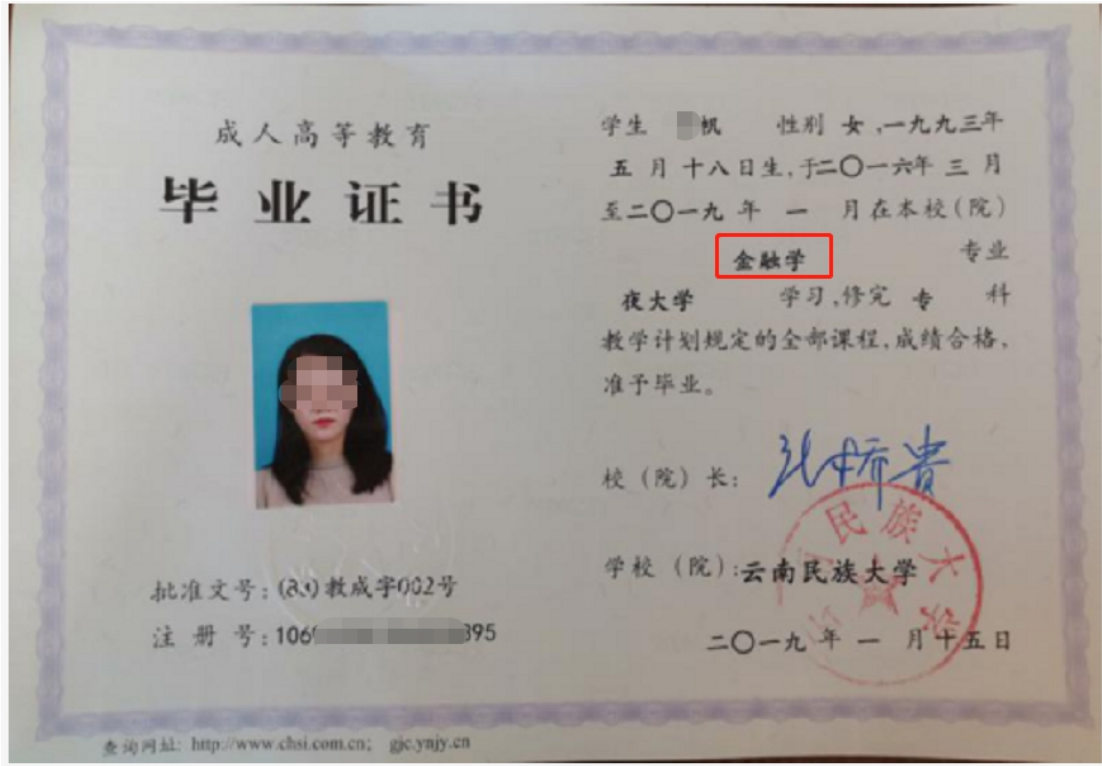 成人高等教育
毕业证书
批准文号:(83)教成字002号
注 册 号:106 895
查询网址: http://www.chsi.com.cn; gjc.ynjy.cn
学生 帆 性别 女,一九九三年
五 月 十八日生,于二〇一六年 三 月
至二〇一九 年 一 月在本校(院)
金融学 专业
夜大学 学习,修完 专 科
教学计划规定的全部课程,成绩合格,
准予毕业。
校(院)长: 张桥贵
学校(院):云南民族大学
云南民族大学
二〇一九 年 一 月 十五日